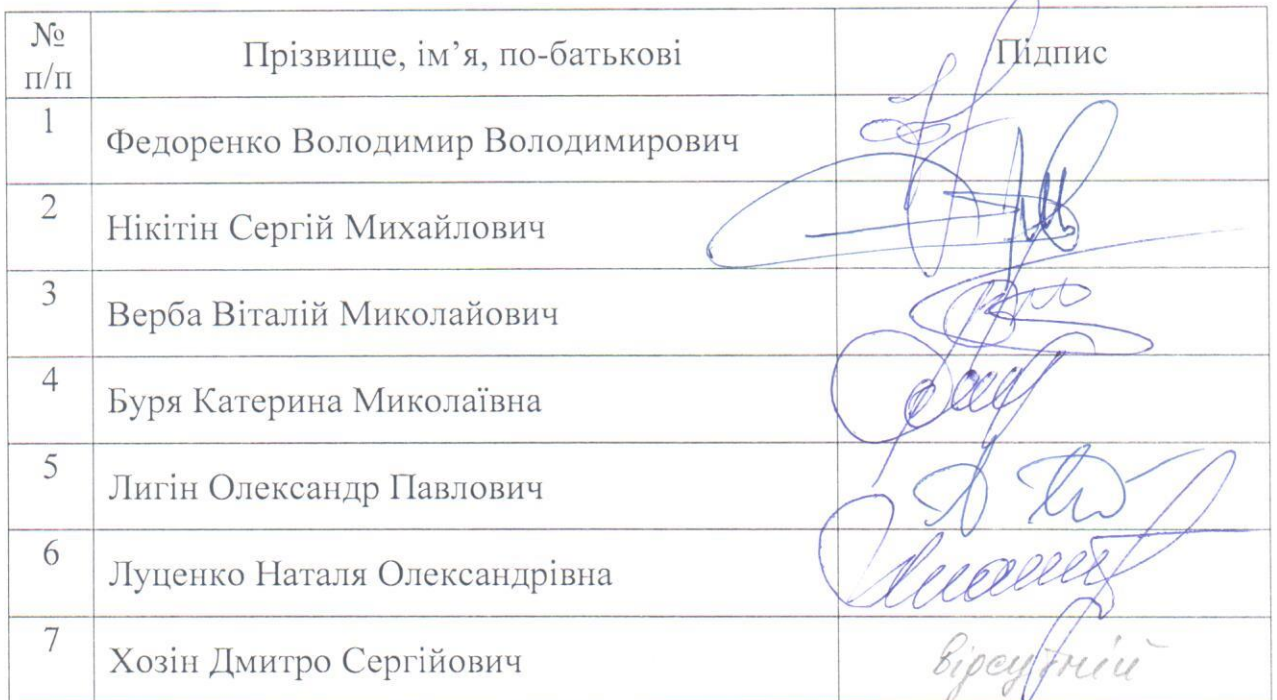 № п/п Прізвище, ім’я, по-батькові Підпис
1 Федоренко Володимир Володимирович
2 Нікітін Сергій Михайлович
3 Верба Віталій Миколайович
4 Буря Катерина Миколаївна
5 Лигін Олександр Павлович
6 Луценко Наталя Олександрівна
7 Хозін Дмитро Сергійович відсутній